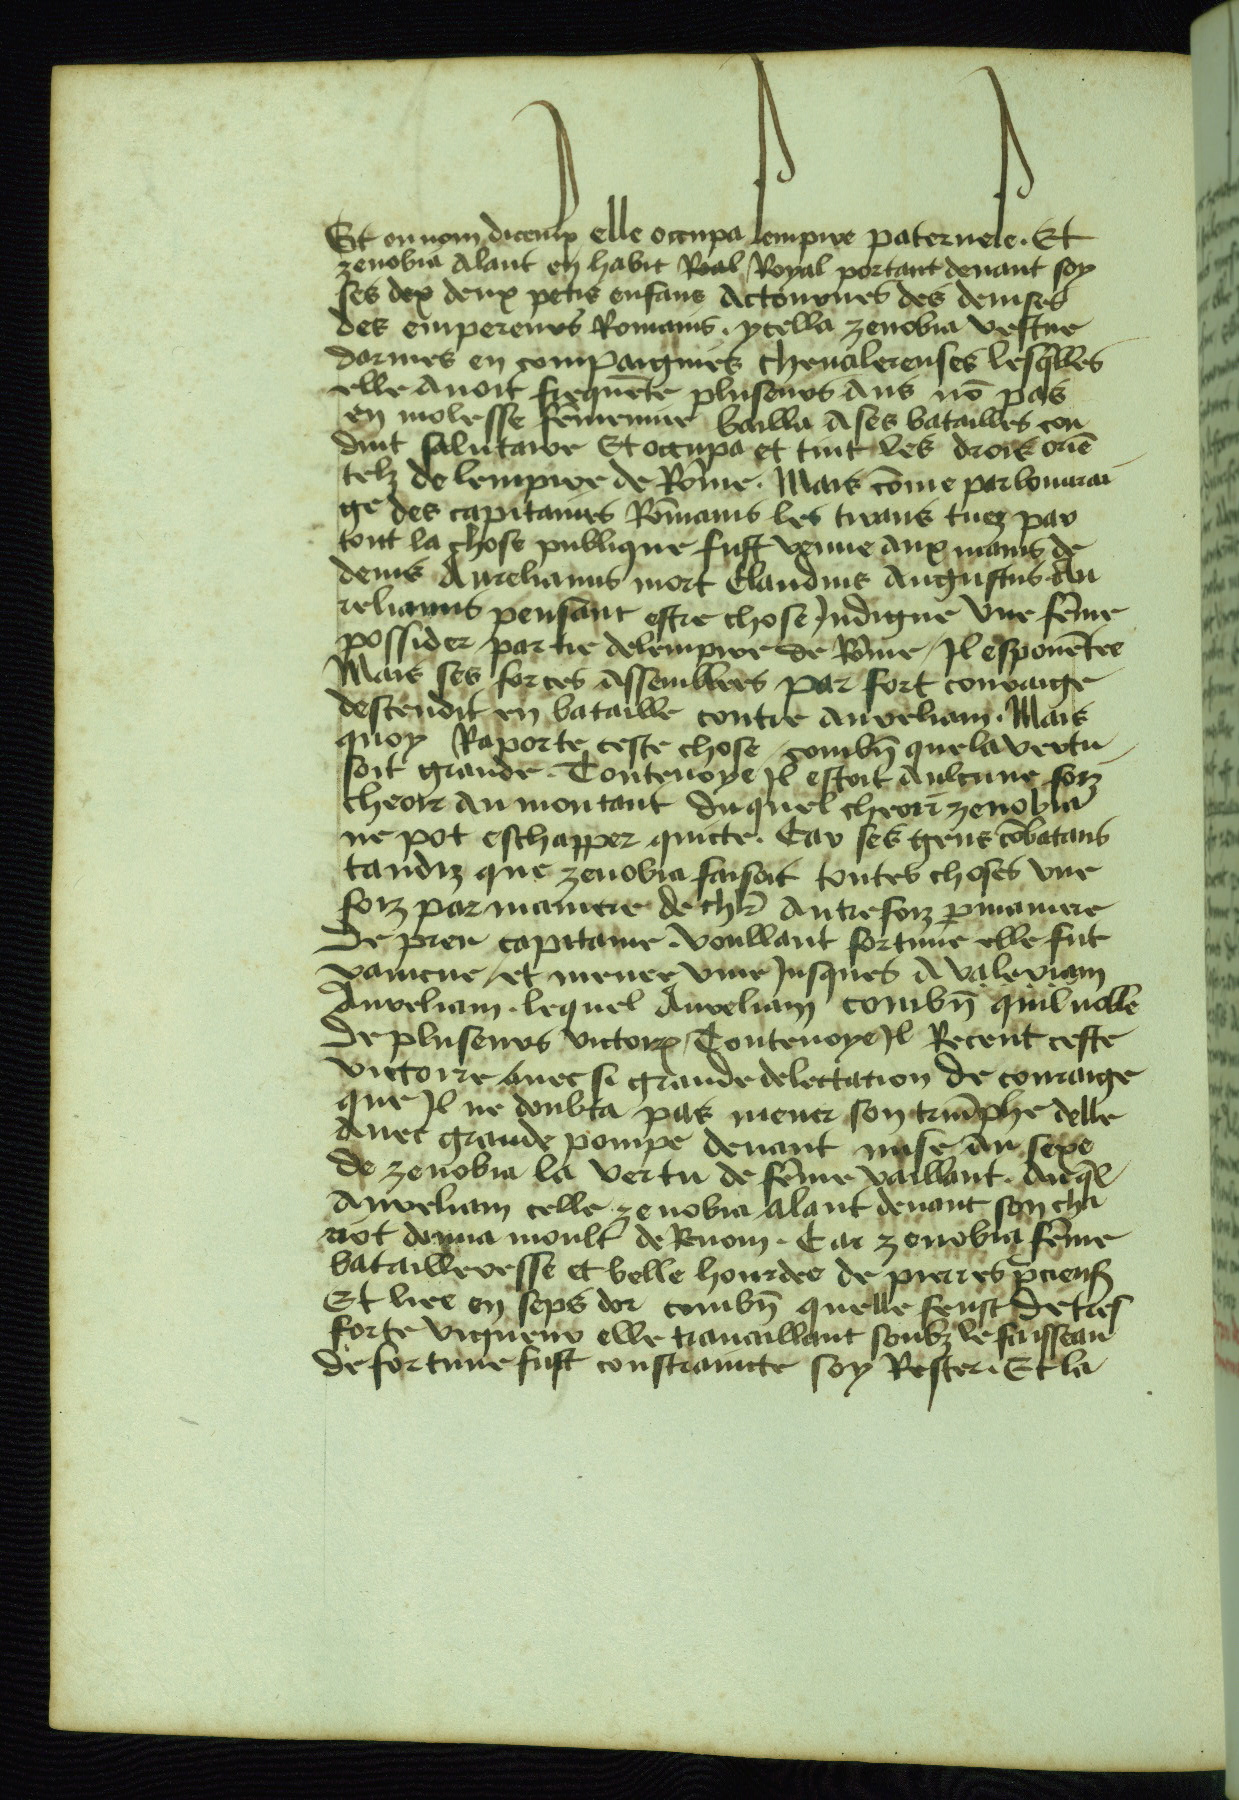 Et ou nom diceulx elle occupa lempire paternele. Et
zenobia alant en habit Roal Royal portant devant soy
ses dex deux petis enfans actournes des devises
des empereurs Romains. ycella zenobia vestue
darmes en compaignies chevalereuses lesqlles
elle avoit frequēte pluseurs ans nō pas
en molesse fēmenine bailla a ses batailles con
duit salutaire Et occupa et tint les drois oriē
telz de lempire de Rōme. Mais cōme par bon
ge des capitaines Rōmains les tirans tuez par
tout la chose publique fust venue aux mains de
denis Aurelianus mort Claudius Augustus Au
relianus pensant estre chose Indigne une fēme
possider partie de lempire de Rōme / Il
Mais ses forces assemblees par fort couraige
descendit en bataille contre aureliam. Mais
quoy Raporte ceste chose combn̄ que la vertu
soit grande. Toutevoye Il estoit aulcune foiz
cheoir au montant duquel cheoir zenobia
ne pot eschapper quicte. Car ses gens cōbatans
tandiz que zenobia faisoit toutes choses une
foiz par maniere de chlr̄ autrefoiz p maniere
De preu capitaine. voullant fortune elle fut
vaincue / et menee vive Jusques a valeriam
Aureliam. lequel Aureliam combn̄ quil noble
De pluseurs victoirs / Toutevoye Il Receut ceste
victoire avec si grande delectation de couraige
que Il ne doubta pas mener son triūphe delle
avec grande pompe devant mise au sexe
de zenobia la vertu de fēme vaillant. auql
Aureliam celle zenobia alant devant son cha
riot donna moult de Renom. Car zenobia fēme
bataillevesse et belle hourdee de pierres pcieuses
Et liee en seps dor combn̄ quelle feust de tres
forte vigueur elle travaillant soubz le faisseau
de fortune fust constraincte soy Rester. Et la